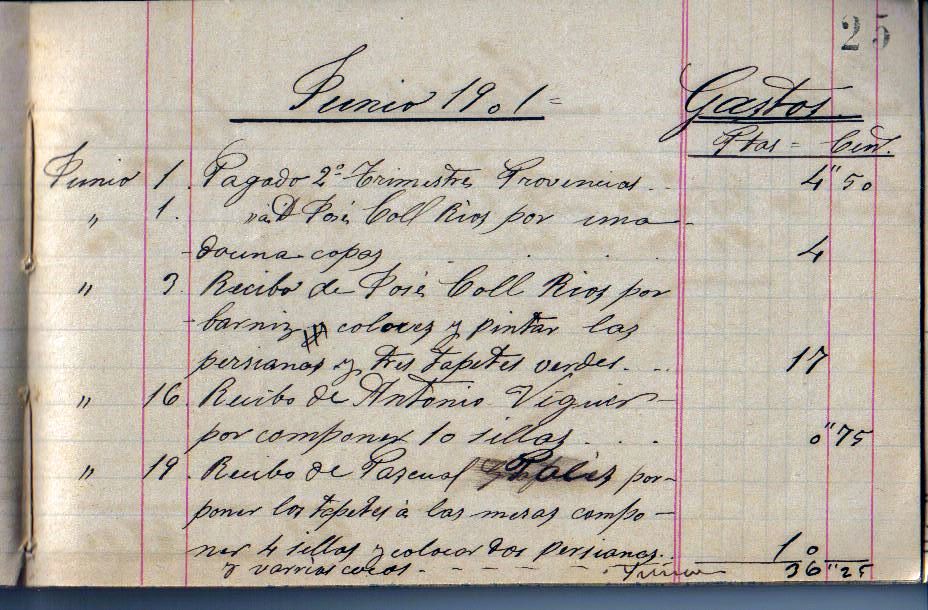 25
Junio 1901 = Gastos
Ptas = Cént.
Junio 1. Pagado 2º Trimestre Provincias . . 4"50
" 1. " á D José Coll Rios por una
docena copas . . . . 4
" 3. Recibo de José Coll Rios por
barniz colores y pintar las
persianas y tres tapetes verdes. . . 17
" 16. Recibo de Antonio Viguer
por componer 10 sillas . . . . 0"75
" 19. Recibo de Pascual por
poner los tapetes á las mesas compo-
ner 4 sillas y colocar dos persianas. . 10
y varrias cosas. - - - - - . 36"25